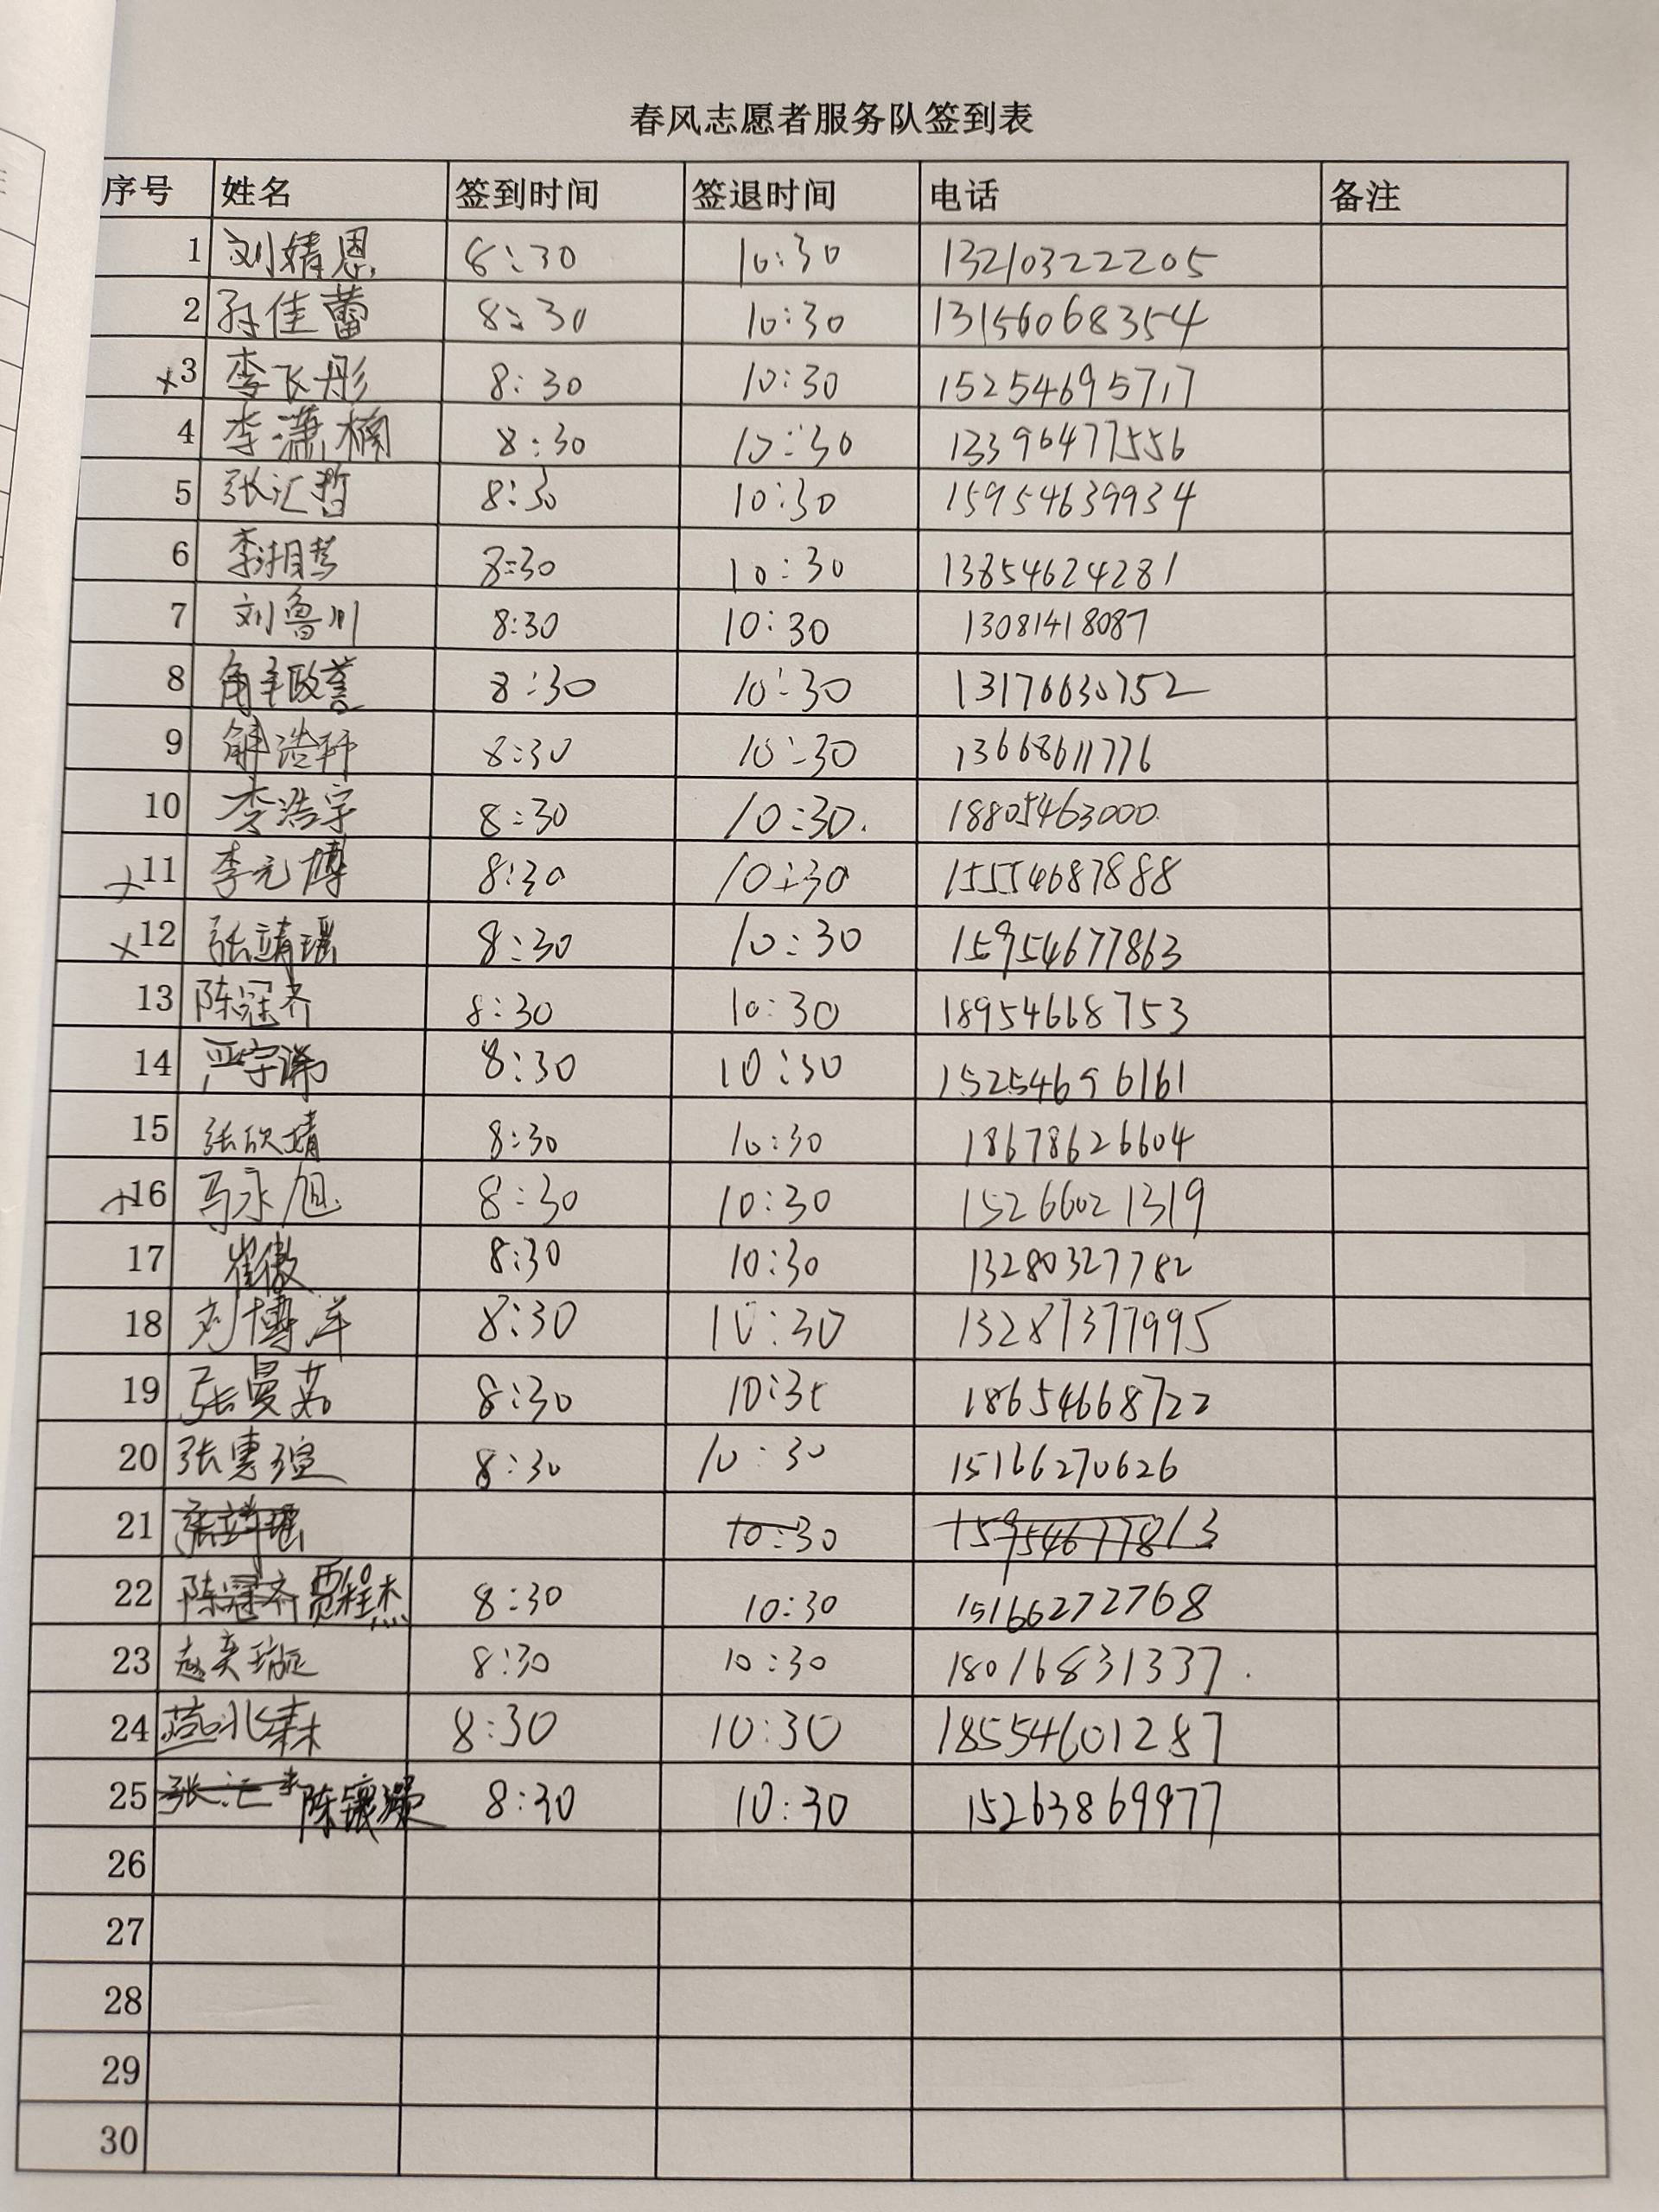 春风志愿者服务队签到表
序号 姓名 签到时间 签退时间 电话 备注
1 刘婧恩 8:30 10:30 13210322205
2 孙佳蕾 8:30 10:30 13156068354
×3 李飞彤 8:30 10:30 15254695717
4 李潇楠 8:30 10:30 13396477556
5 张汇哲 8:30 10:30 15954639934
6 8:30 10:30 13854624281
7 刘鲁川 8:30 10:30 13081418087
8 8:30 10:30 13176630752
9 解浩轩 8:30 10:30 13668611776
10 李浩宇 8:30 10:30. 18805463000
×11 李元博 8:30 10:30 15554687888
×12 张靖瑶 8:30 10:30 15954677863
13 陈冠齐 8:30 10:30 18954668753
14 8:30 10:30 15254696161
15 张欣婧 8:30 10:30 18678626604
×16 马永旭 8:30 10:30 15266021319
17 崔傲 8:30 10:30 13280327782
18 刘博洋 8:30 10:30 13287377995
19 张曼茹 8:30 10:30 18654668722
20 张惠瑄 8:30 10:30 15166270626
21 张靖瑶 10:30 15954677813
22 陈冠齐 贾程杰 8:30 10:30 15166272768
23 8:30 10:30 18016831337.
24 8:30 10:30 18554601287
25 8:30 10:30 15263869977
26
27
28
29
30